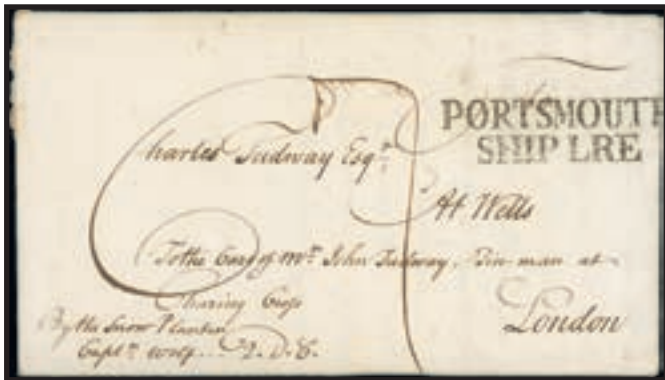 PORTSMOUTH
SHIP LRE
Charles Tudway Esqr.
At Wells
To the Care of Mr. John Tudway, Pin-man at
Charing Cross
London
By the Snow Planter
Capt.n Q.D.C.